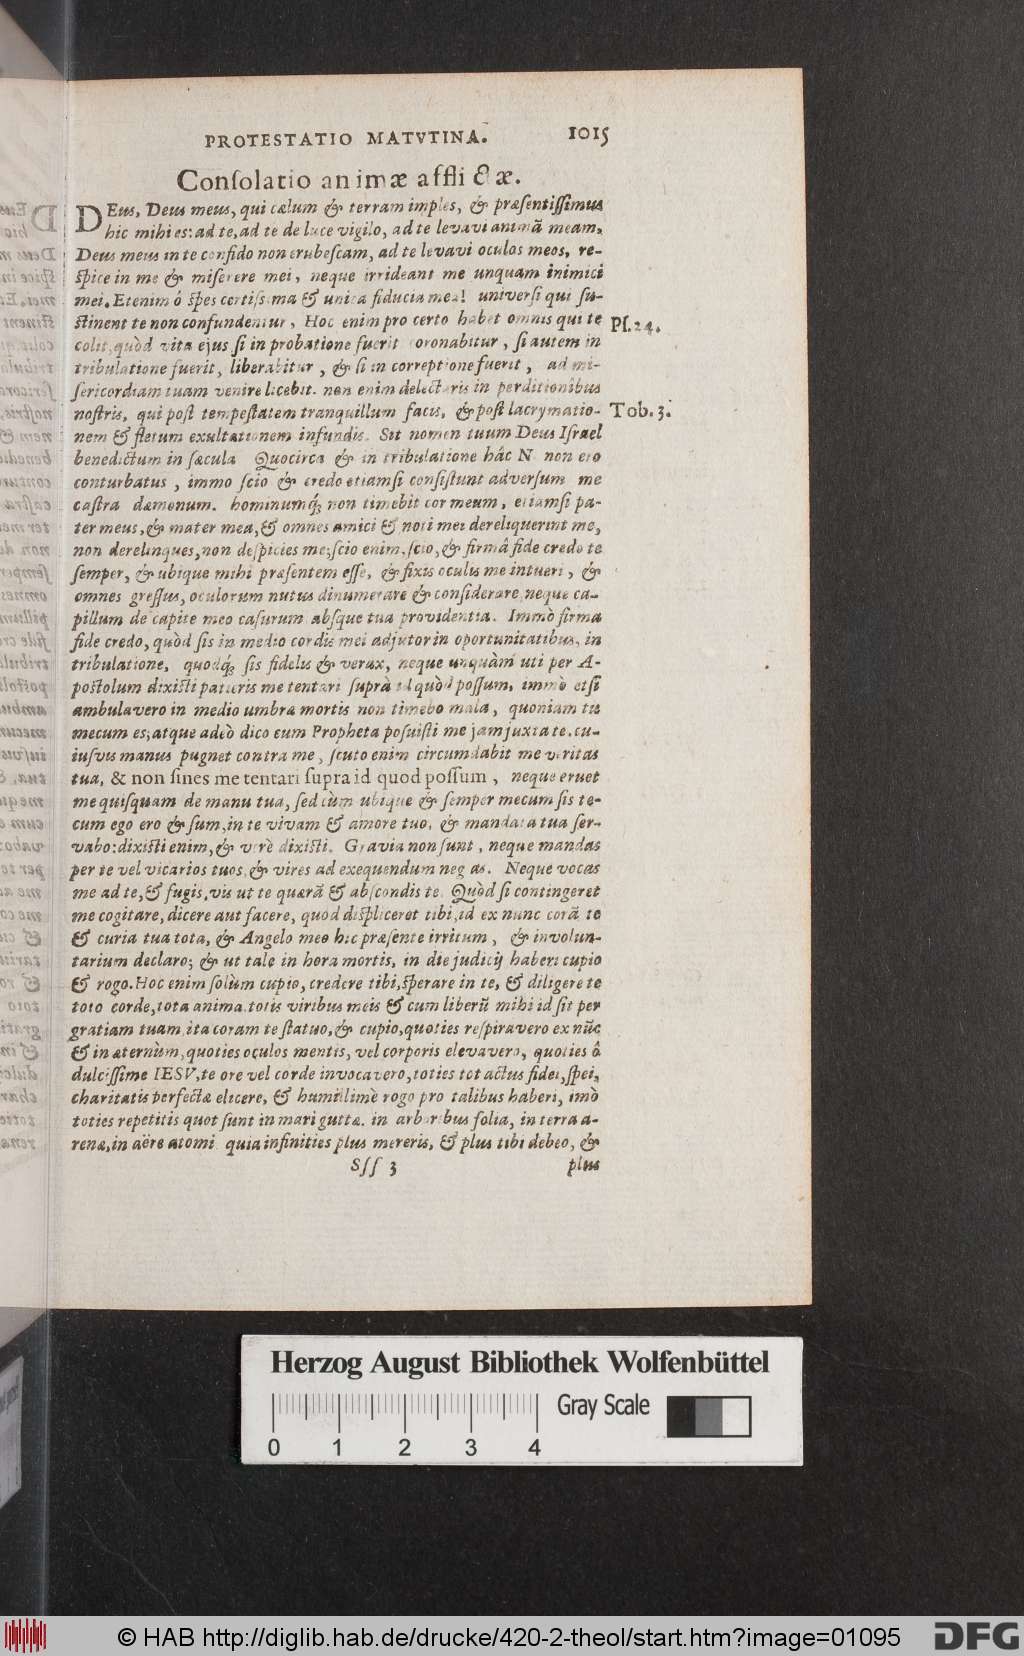 PROTESTATIO MATVTINA. 1015
Conſolatio animæ afflictæ.
DEus, Deus meus, qui cælum & terram imples, & præſentiſſimus
hic mihi es: ad te, ad te de luce vigilo, ad te levavi animã meam,
Deus meus in te confido non erubeſcam, ad te levavi oculos meos, re-
ſpice in me & miſerere mei, neque irrideant me unquam inimici
mei. Etenim ó ſpes certiſsima & unica fiducia mea! univerſi qui ſu-
ſtinent te non confundentur, Hoc enim pro certo habet omnis qui te
Pſ. 24.
colit, quòd vita ejus ſi in probatione fuerit coronabitur, ſi autem in
tribulatione fuerit, liberabitur, & ſi in correptione fuerit, ad mi-
ſericordiam tuam venire licebit. non enim delectaris in perditionibus
noſtris, qui poſt tempeſtatem tranquillum facis, & poſt lacrymatio-
Tob. 3.
nem & fletum exultationem infundis. Sit nomen tuum Deus Iſrael
benedictum in ſæcula Quocirca & in tribulatione hác N. non ero
conturbatus, immo ſcio & credo etiamſi conſiſtunt adverſum me
caſtra dæmonum. hominumq́; non timebit cor meum, etiamſi pa-
ter meus, & mater mea, & omnes amici & noti mei dereliquerint me,
non derelinques, non deſpicies me; ſcio enim, ſcio, & firmâ fide credo te
ſemper, & ubique mihi præſentem eſſe, & fixis oculis me intueri, &
omnes greſſus, oculorum nutus dinumerare & conſiderare, neque ca-
pillum de capite meo caſurum abſque tua providentia. Immò firma
fide credo, quòd ſis in medio cordis mei adjutor in oportunitatibus, in
tribulatione, quodq́; ſis fidelis & verax, neque unquàm uti per A-
poſtolum dixiſti patieris me tentari ſuprà id quòd poſſum, immò etſi
ambulavero in medio umbræ mortis non timebo mala, quoniam tu
mecum es; atque adeò dico cum Propheta poſuiſti me jam juxta te. cu-
iuſvis manus pugnet contra me, ſcuto enim circumdabit me veritas
tua, & non ſines me tentari ſupra id quod poſſum, neque eruet
me quiſquam de manu tua, ſed cùm ubique & ſemper mecum ſis te-
cum ego ero & ſum, in te vivam & amore tuo, & mandata tua ſer-
vabo: dixiſti enim, & verè dixiſti. Gravia non ſunt, neque mandas
per te vel vicarios tuos, & vires ad exequendum negas. Neque vocas
me ad te, & fugis, vis ut te quærã & abſcondis te. Quòd ſi contingeret
me cogitare, dicere aut facere, quod diſpliceret tibi, id ex nunc corã te
& curia tua tota, & Angelo meo hic præſente irritum, & involun-
tarium declaro; & ut tale in hora mortis, in die judicij haberi cupio
& rogo. Hoc enim ſolùm cupio, credere tibi, ſperare in te, & diligere te
toto corde, tota anima totis viribus meis & cum liberũ mihi id ſit per
gratiam tuam, ita coram te ſtatuo, & cupio, quoties reſpiravero ex nũc
& in æternùm, quoties oculos mentis, vel corporis elevavero, quoties ô
dulciſſime IESV, te ore vel corde invocavero, toties tot actus fidei, ſpei,
charitatis perfectæ elicere, & humillimè rogo pro talibus haberi, imò
toties repetitis quot ſunt in mari guttæ. in arboribus folia, in terra a-
renæ, in aëre atomi quia infinities plus mereris, & plus tibi debeo, &
Sſſ 3 plus
Herzog August Bibliothek Wolfenbüttel
Gray Scale
0 1 2 3 4
© HAB http://diglib.hab.de/drucke/420-2-theol/start.htm?image=01095 DFG